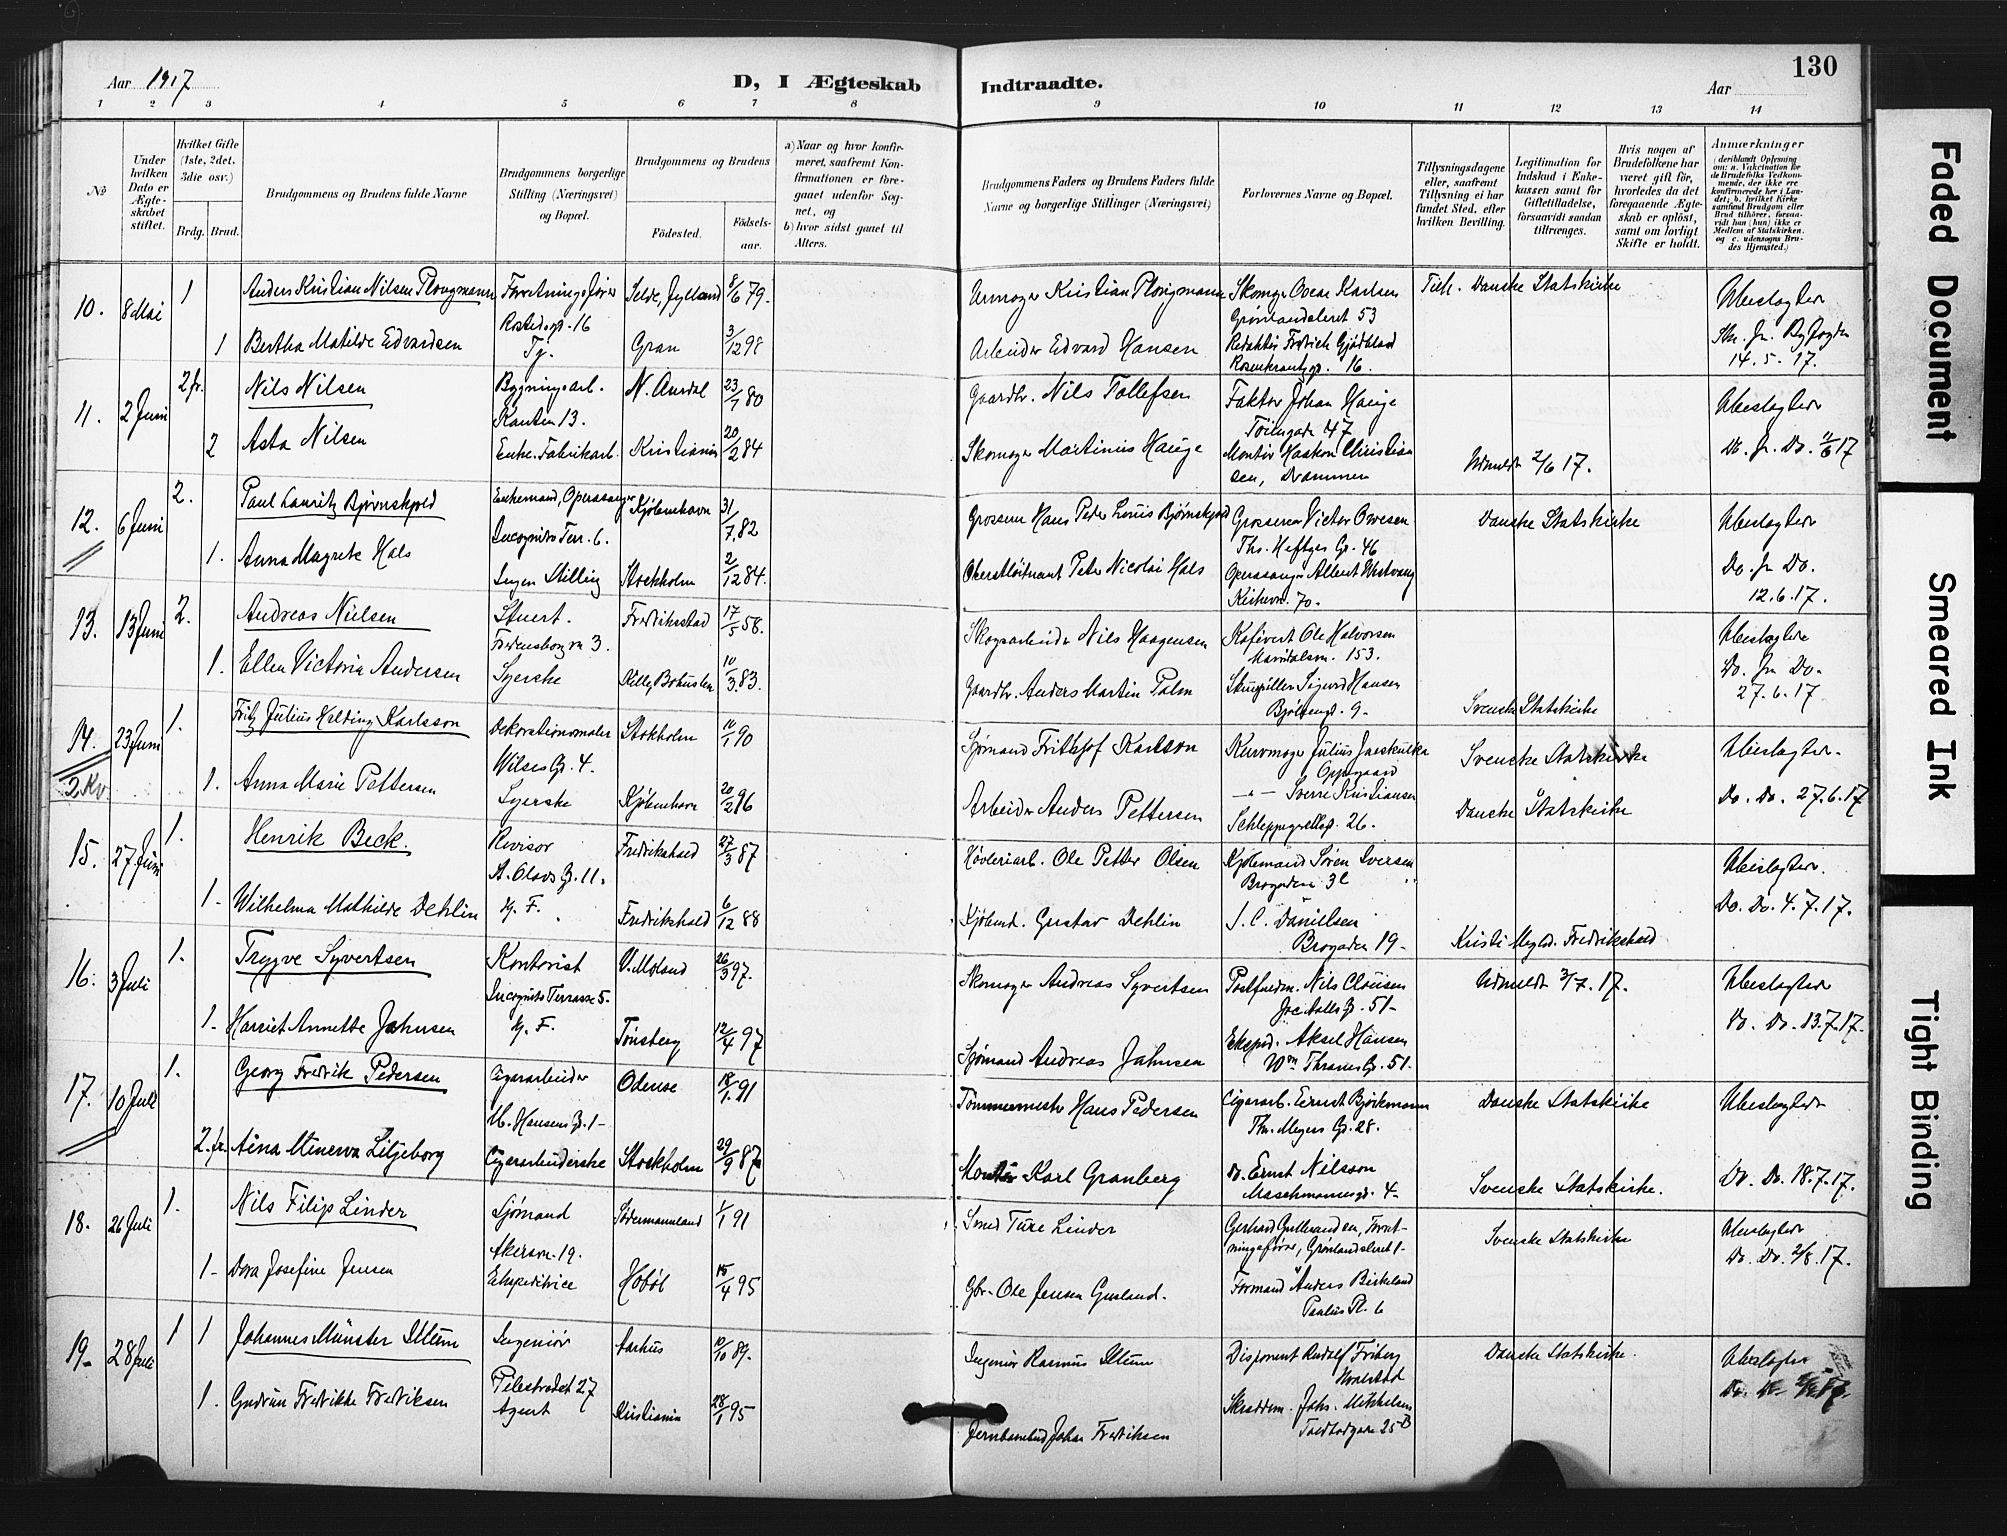 130
Aar 1917
D, I Ægteskab Indtraadte.
Aar
1 2 3 4 5 6 7 8 9 10 11 12 13 14
No
Under hvilken Dato er Ægteskabet stiftet.
Hvilket Gifte (1ste, 2det, 3die osv.)
Brdg. Brud.
Brudgommens og Brudens fulde Navne
Brudgommens borgerlige Stilling (Næringsvei) og Bopæl.
Brudgommens og Brudens
Fødested.
Fødsels-aar.
a) Naar og hvor konfirmeret, saafremt Konfirmationen er foregaaet udenfor Sognet, og
b) hvor sidst gaaet til Alters.
Brudgommens Faders og Brudens Faders fulde Navne og borgerlige Stillinger (Næringsvei)
Forlovernes Navne og Bopæl.
Tillysningsdagene eller, saafremt Tillysning ei har fundet Sted, efter hvilken Bevilling.
Legitimation for Indskud i Enkekassen samt for Giftetilladelse, forsaavidt saadan tiltrænges.
Hvis nogen af Brudefolkene har været gift før, hvorledes da det foregaaende Ægteskab er opløst, samt om lovligt Skifte er holdt.
Anmærkninger
(deriblandt Oplysning om: a. Vakcination for de Brudefolks Vedkommende, der ikke ere konfirmerede her i Landet; b. hvilket Kirkesamfund Brudgom eller Brud tilhører, forsaavidt han (hun) ikke er Medlem af Statskirken, og c. udensogns Brudes Hjemsted.)
10. 8 Mai 1 Anders Kristian Nilsen Plougmann Forretningsfører Selde, Jylland 8/6 79. Urmager Kristian Plougmann Skomager Oscar Karlsen Danske Statskirke Ubeslægtede
Rostedsgd. 16 Grønlandsleret 53
1 Bertha Matilde Edvardsen Tj. Gran 3/12 98 Arbeider Edvard Hansen Redaktør Fredrik Gjödblad
Rosenkrantzgd. 16. 14.5.17.
11. 2 Juni 2 fr. Nils Nilsen Bygningsarb. N. Aurdal 23/1 80 Gaardbr. Nils Tollefsen Faktor Johan Hauge Ubeslægtede
Kanten 13. Töiengade 47
2 Asta Nilsen Enke. Fabrikarb. Kristiania 20/2 84 Skomager Martinus Hauge Montör Haakon Christiansen, Drammen Udmeldt 2/6 17. Do. fr. Do. 11/6 17
12. 6 Juni 2. Paul Lauritz Bjørnskjold Enkemand, Operasanger Kjøbenhavn 31/7 82 Grosserer Hans Peder Louis Bjørnskjold Grosserer Victor Owesen Danske Statskirke Ubeslægtede
Incognito Terr. 6. Ths. Heftyes Gd. 46
1. Anna Magrete Hals Ingen Stilling Stockholm 2/12 84. Oberstløitnant Peter Nicolai Hals Operasanger Albert Westvang Do. fr. Do.
70. 12.6.17.
13. 13 Juni 2. Andreas Nielsen Stuert. Fredrikstad 17/5 58. Skogsarbeider Nils Haagensen Kafévert Ole Halvorsen Ubeslægtede
Fredensborgvn 3. Maridalsvn. 153.
1. Ellen Victoria Andersen Syerske Bohuslen 10/3 83. Gaardbr. Anders Martin Palm Sigurd Hansen Svenske Statskirke Do. fr. Do.
Bjölsengd. 9. 27.6.17.
14. 23 Juni 1. Fritz Julius Helding Karlsson Dekorationsmaler Stokholm 11/1 90 Sjømand Frithjof Karlson Kurvmager Julius Svenske Statskirke Ubeslægtede.
Wilses Gd. 4. Oppegaard
2 Kv. 1. Anna Marie Pettersen Syerske Kjøbenhavn 20/2 96 Arbeider Anders Pettersen Sverre Kristiansen Danske Statskirke Do. Do. 27.6.17
Schleppegrellsgd. 26.
15. 27 Juni 1. Henrik Beck. Revisor Fredrikshald 27/3 87 Høvleriarb. Ole Petter Olsen Kjøbmand Søren Iversen Ubeslægtede.
St. Olavs Gd. 11. Brogaden 3
1. Wilhelma Mathilde Dehlin Kj. F. Fredrikshald 6/12 88 Kjøbmd. Gustav Dehlin J. C. Danielsen Kristi Mgd. Fredrikshald Do. Do. 4.7.17.
Brogaden 19
16. 3 Juli 1. Trygve Syvertsen Kontorist V. Moland 26/3 97. Skomager Andreas Syvertsen Postfuldm. Nils Clausen Udmeldt 3/7.17. Ubeslægtede
Incognito Terrasse 5. Jac. Aalls Gd. 51
1. Harriet Annette Jahnsen Kj. F. Tønsberg 12/4 97 Sjømand Andreas Jahnsen Eksped. Aksel Hansen Do. Do. 13.7.17.
Wm Thranes Gd. 51.
17. 10 Juli 1. Georg Fredrik Pedersen Cigararbeider Odense 18/1 91 Tømmermester Hans Pedersen Cigararb. Ernst Björkmann Danske Statskirke Ubeslægtede
M. Hansens Gd. 1 Th. Meyers Gd. 28.
2. fr. Aina Minerva Liljeborg Cigararbeiderske Stockholm 29/9 87 Montör Karl Granberg Do. Ernst Nilsson Svenske Statskirke. Do. Do. 18.7.17.
Maschmannsgd. 4
18. 26 Juli 1. Nils Filip Linder Sjømand Södermannland 1/1 91 Smed Ture Linder Gerhard Gulbrandsen, Forretningsfører, Grønlandsleret 1 Svenske Statskirke Ubeslægtede
Akersvn. 19. Do. Do. 2/8.17.
1 Dora Josefine Jensen Ekspeditrice Hobøl 15/4 95 Gbr. Ole Jensen Formand Anders Birkeland
Paulus Pl. 6
19 28 Juli 1 1 Johannes Münster Illum Ingeniør Aarhus 10/10 89. Ingeniør Rasmus Illum Disponent Rudolf Friberg Danske Statskirke. Ubeslægtede
Pilestrædet 27
1. Gudrun Fredrikke Fredriksen Agent Kristiania 28/1 95 Jernbanebud Johan Fredriksen Skreddem. Johs. Mikkelsen
Toldbodgaden 25 B
Faded Document
Smeared Ink
Tight Binding